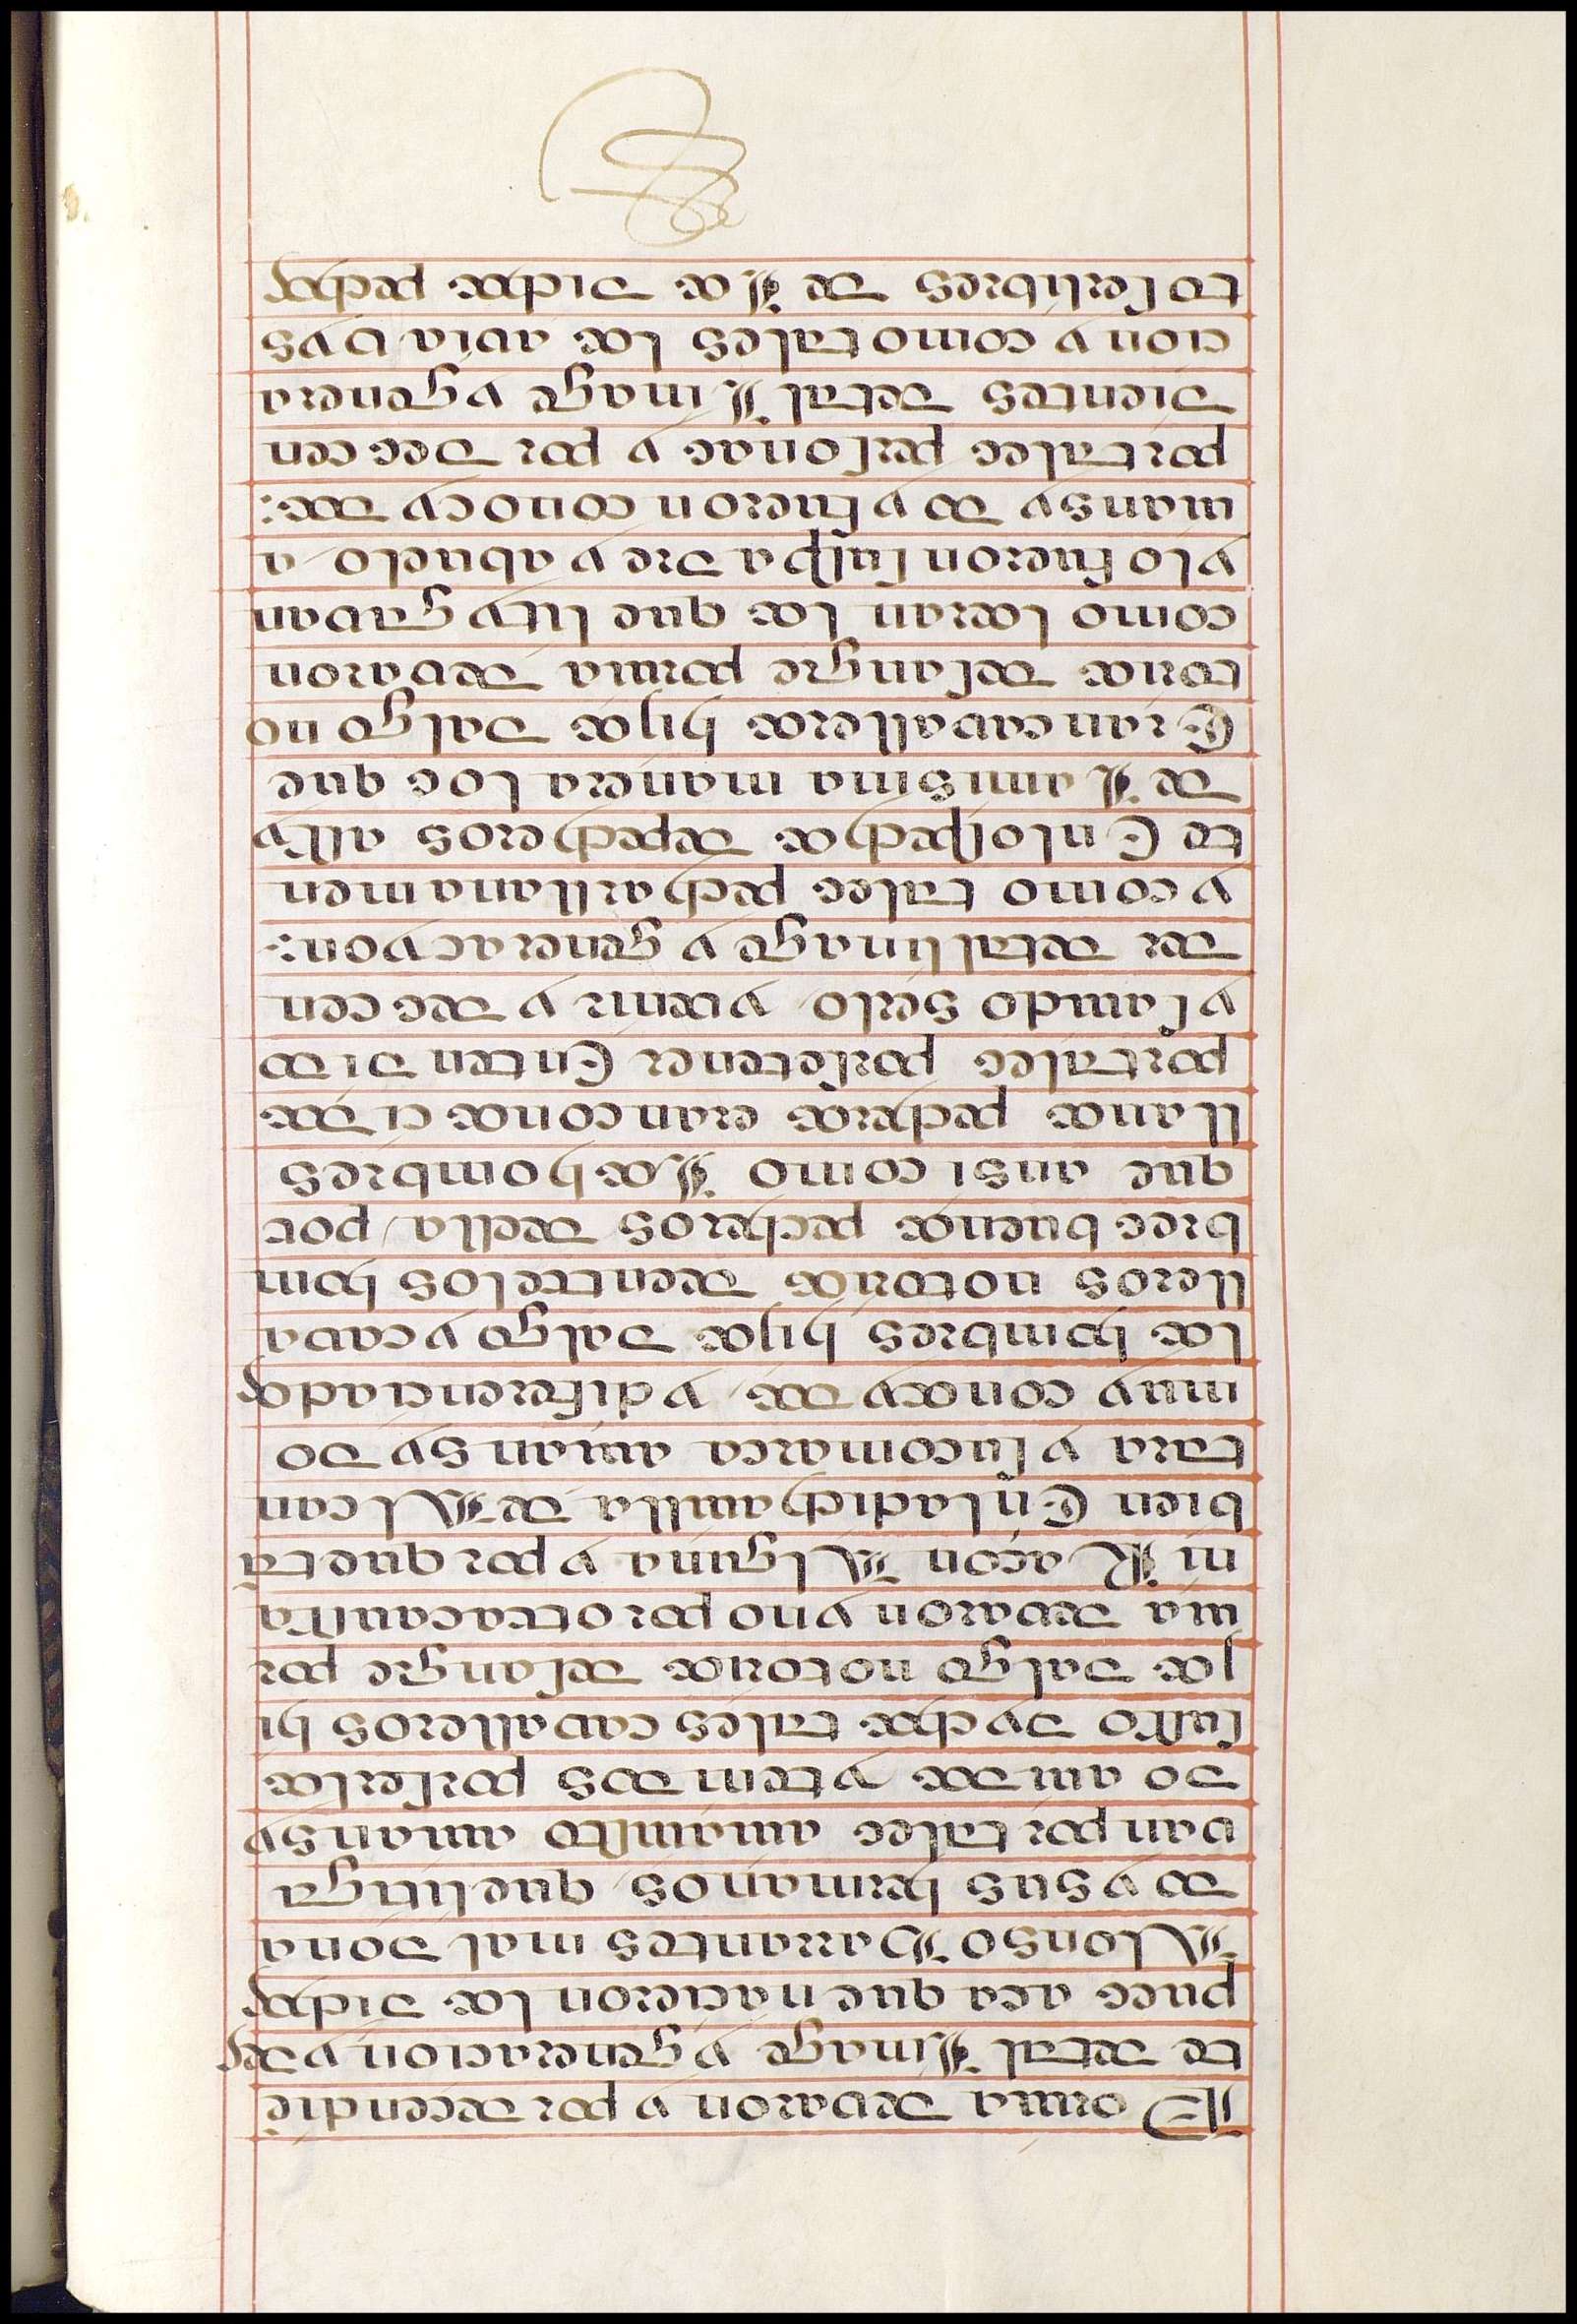 Forma de varon y por decendie
te de tal Linage y generacion y deq
pues aca que nacieron los Dichos
Alonso Barrantes mal Dona
do y sus hermanos que litiga
van por tales auian sy
Do auidos y tenidos por
Dychos tales cavalleros hi
jos Dalgo notorios de sangre por
uia de varon y no por otra
ni Racon Alguna y por que ta
bien En la dicha villa de Alcan
tara y su comarca auian sydo
muy conocydos y diferenciados
los hombres hijos Dalgo y cava
lleros notorios de entre los hom
bres buenos pecheros de ella por
que ansi como los hombres
llanos pecheros eran conoscidos
por tales por se tener En ten Dido
y sauido sello y venir y des cen
der de tal linage y generacyon:
y como tales pechauan llanamen
te En los pechos de pecheros
de la misma manera los que
Eran cavalleros hijos Dalgo no
torios de sangre por via de varon
como lo eran los que litygavan
y lo fueron su padre y abuelo a
uian sydo y fueron conocydos:
por tales personas y por des cen
dientes de tal Linage y genera
cion y como tales los auia vys
to ser libres de los dichos pechos